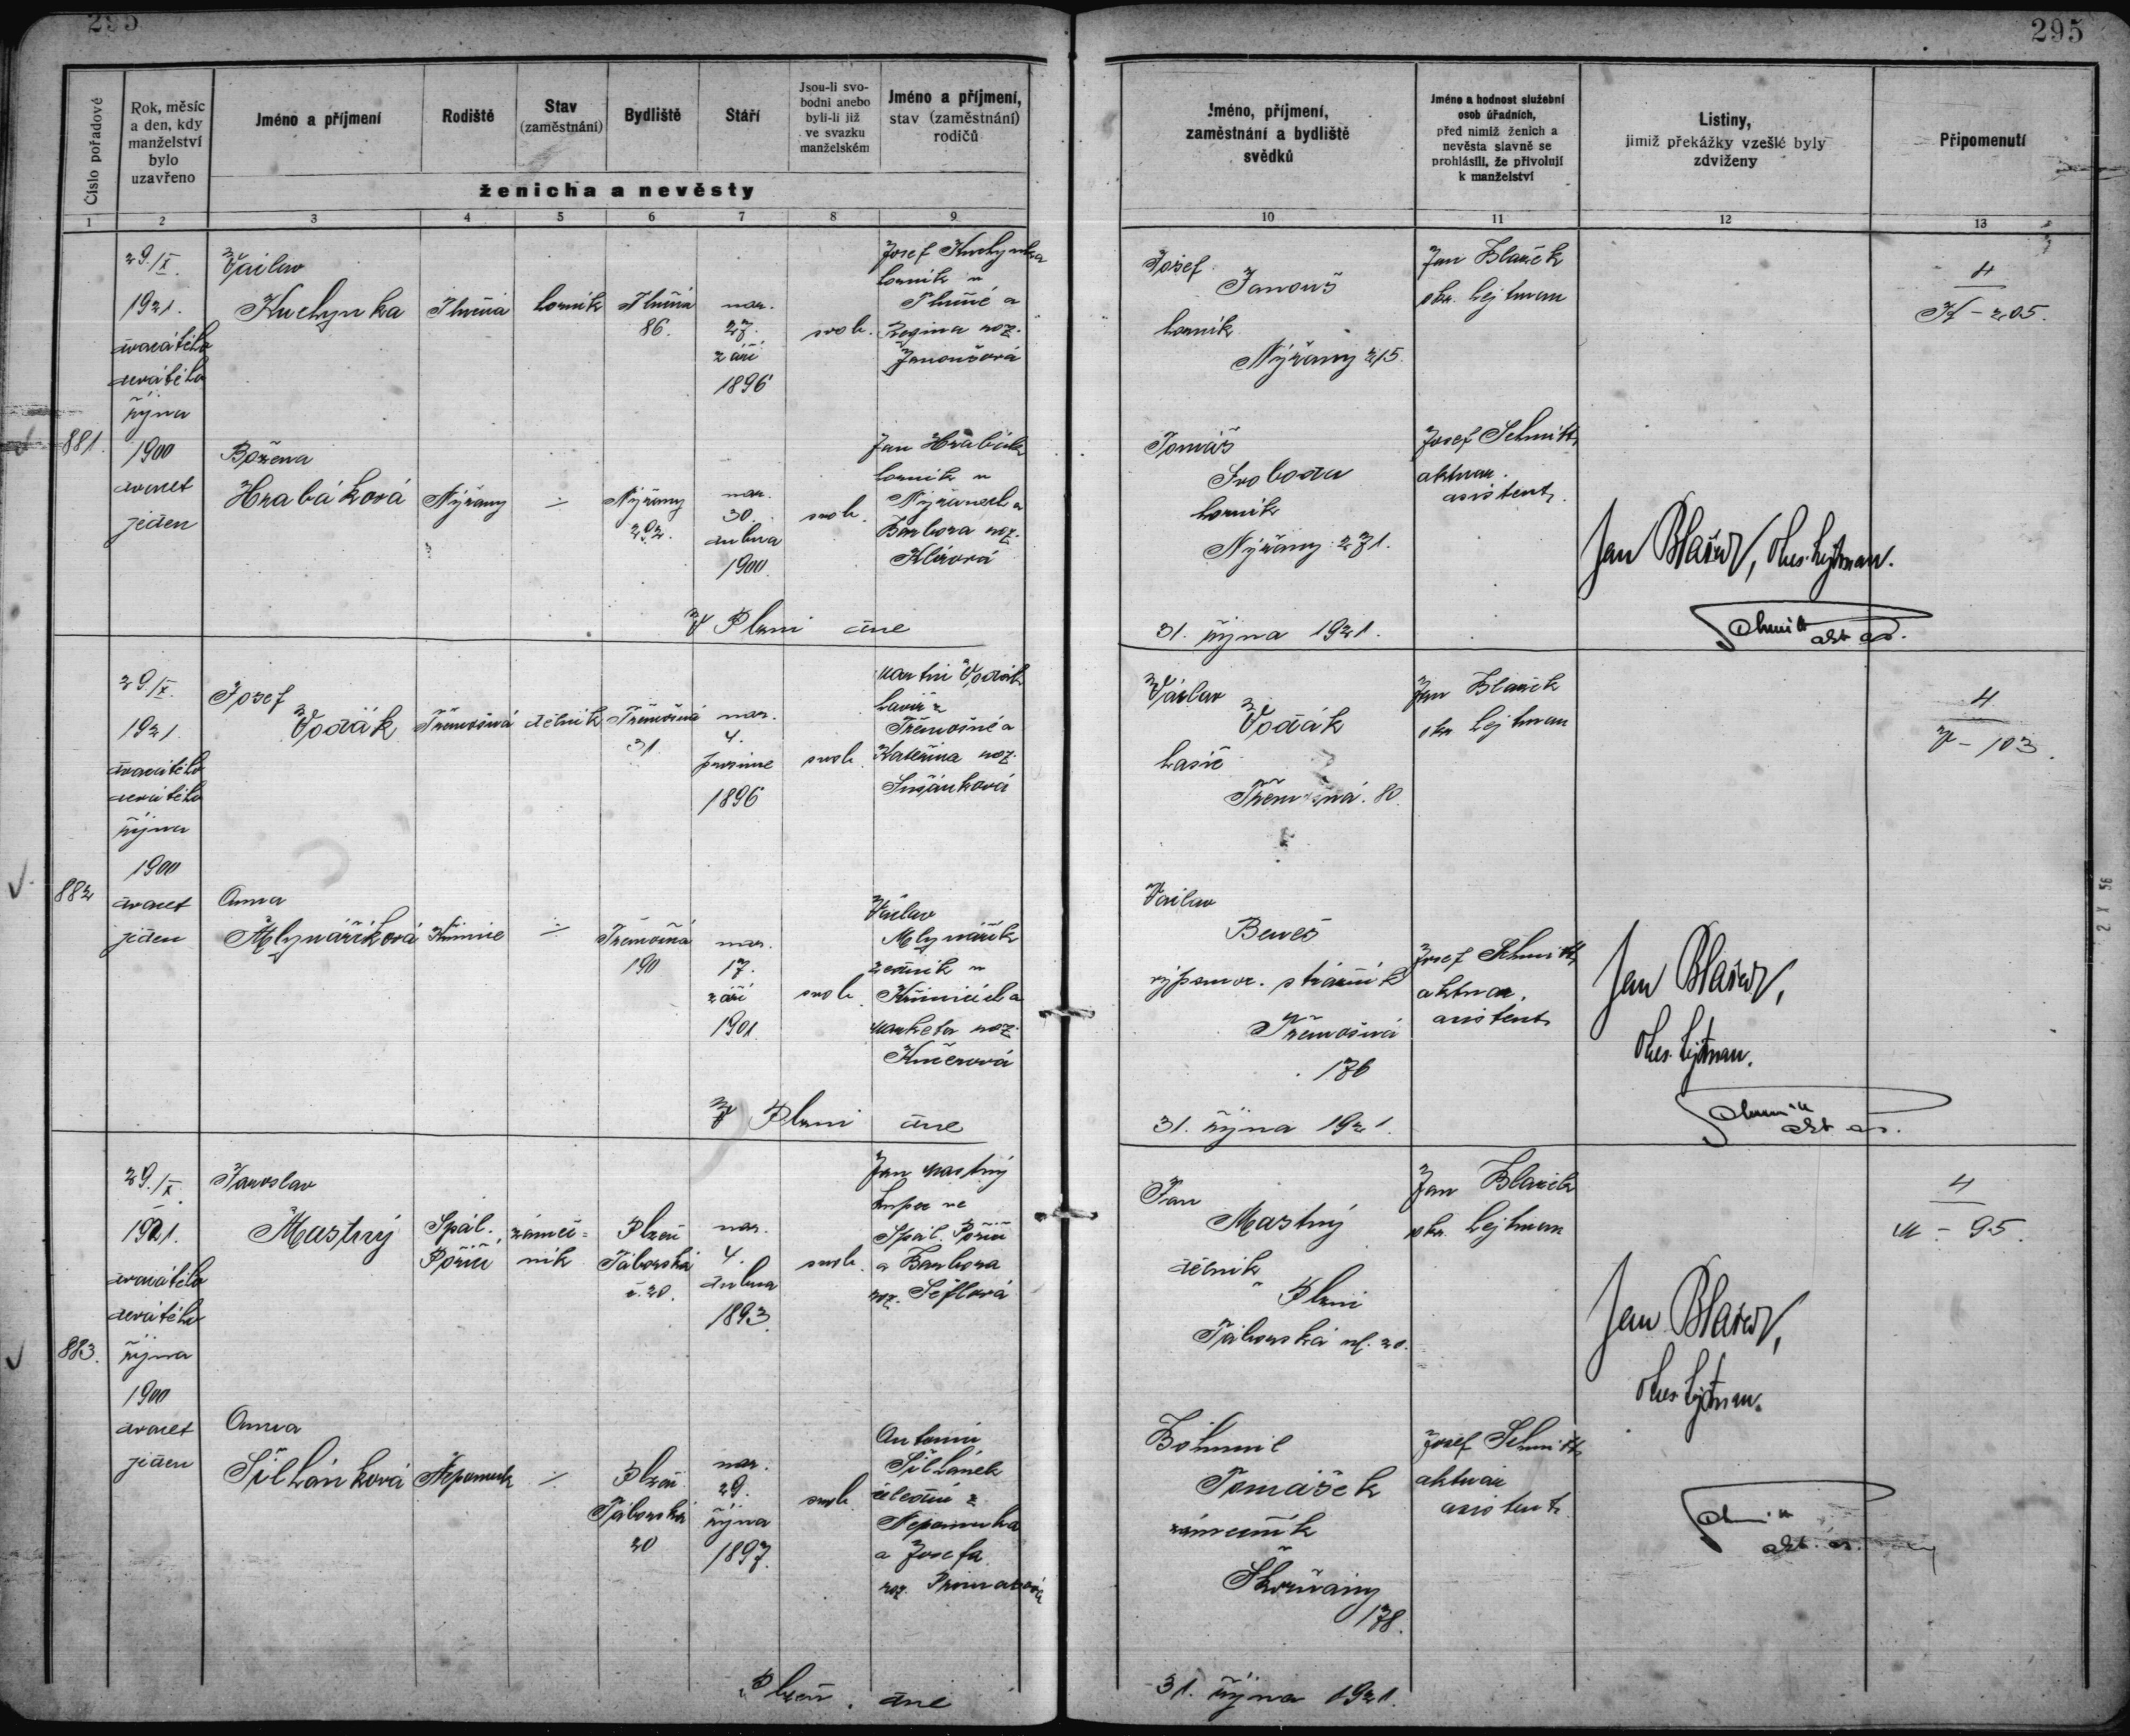 295
295
Číslo pořadové
Rok, měsíc
a den, kdy
manželství
bylo
uzavřeno
Jméno a příjmení
Rodiště
Stav
(zaměstnání)
Bydliště
Stáří
Jsou-li svo-
bodni anebo
byli-li již
ve svazku
manželském
Jméno a příjmení,
stav (zaměstnání)
rodičů
ženicha a nevěsty
Jméno, příjmení,
zaměstnání a bydliště
svědků
Jméno a hodnost služební
osob úřadních,
před nimiž ženich a
nevěsta slavně se
prohlásili, že přivolují
k manželství
Listiny,
jimiž překážky vzešlé byly
zdviženy
Připomenutí
1
2
3
4
5
6
7
8
9
10
11
12
13
881.
29./X.
1921.
dvacátého
devátého
října
1900
dvacet
jeden
Václav
Kuchynka
Tlučná
horník
Tlučná
86.
nar.
27.
září
1896
svob.
Josef Kuchynka
horník v
Tlučné a
Regina roz.
Janoušová
Josef
Janouš
horník
Nýřany 215.
Jan Blažek
okr. hejtman
4
K - 205.
Božena
Hrabáková
Nýřany
÷
Nýřany
292.
nar.
30.
dubna
1900.
svob.
Jan Hrabák
horník v
Nýřanech a
Barbora roz.
Tomáš
Svoboda
horník
Nýřany 271.
Josef Schmitt,
aktuar.
asistent.
Jan Blažek, okres. hejtman.
Schmitt
akt. as.
V Plzni dne
31. října 1921.
882
29./X.
1921
dvacátého
devátého
října
1900
dvacet
jeden
Josef
Vodák
Třemošná
dělník
Třemošná
31.
nar.
4.
prosince
1896
svob.
Martin Vodák
havíř z
Třemošné a
Kateřina roz.
Václav
Vodák
Třemošná 80.
Jan Blažek
okr. hejtman
4
V - 103.
Anna
Mlynaříková
Křimice
÷
Třemošná
190
nar.
17.
září
1901.
svob.
Václav
Mlynařík
zedník v
Křimicích a
Marketa roz.
Kučerová
Václav
Beneš
výpomoc. strážník
Třemošná
176
Josef Schmitt,
aktuar.
asistent
Jan Blažek,
okres. hejtman.
Schmitt
akt. as.
V Plzni dne
31. října 1921.
883.
29./X.
1921.
dvacátého
devátého
října
1900
dvacet
jeden
Jaroslav
Mastný
Spál.
Poříčí
zámeč-
ník
Plzeň
Táborská
č. 20.
nar.
4.
dubna
1893.
svob.
Jan Mastný
Spál. Poříčí
a Barbora
roz. Šeflová
Jan
Mastný
dělník
v Plzni
Táborská ul. 20.
Jan Blažek
okr. hejtman
4
M - 95.
Jan Blažek,
okres. hejtman.
Anna
Šilhánková
Nepomuk
÷
Plzeň
Táborská
20
nar.
29.
října
1897.
svob.
Antonín
Šilhánek
úředník z
Nepomuka
a Josefa
roz.
Bohumil
Tomášek
zámečník
Skvrňany
178.
Josef Schmitt,
aktuar
asistent
Schmitt
akt. as.
V Plzni dne
31. října 1921.
2 X 56